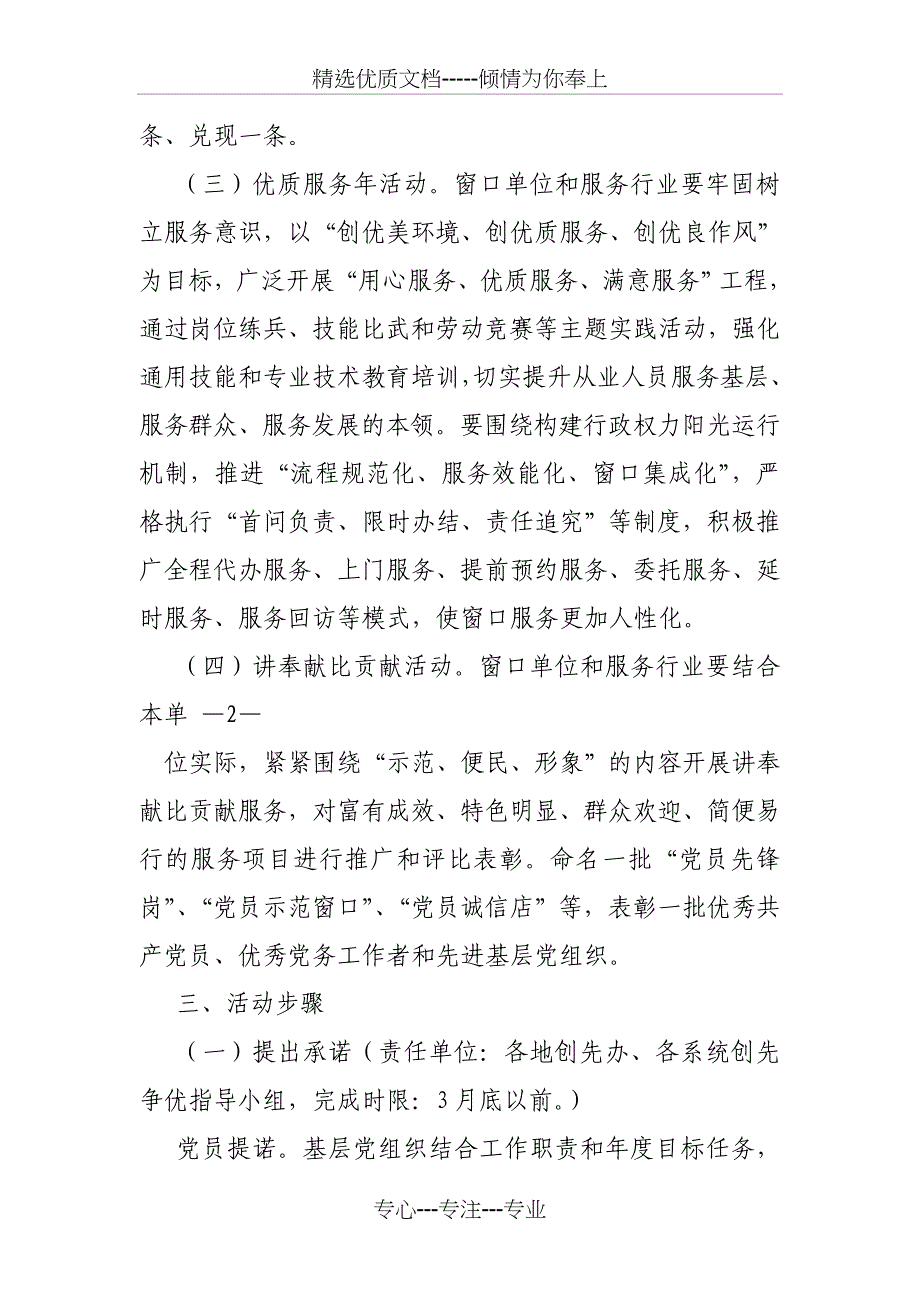 精选优质文档-----倾情为你奉上
条、兑现一条。
（三）优质服务年活动。窗口单位和服务行业要牢固树
立服务意识，以“创优美环境、创优质服务、创优良作风”
为目标，广泛开展“用心服务、优质服务、满意服务”工程，
通过岗位练兵、技能比武和劳动竞赛等主题实践活动，强化
通用技能和专业技术教育培训，切实提升从业人员服务基层、
服务群众、服务发展的本领。要围绕构建行政权力阳光运行
机制，推进“流程规范化、服务效能化、窗口集成化”，严
格执行“首问负责、限时办结、责任追究”等制度，积极推
广全程代办服务、上门服务、提前预约服务、委托服务、延
时服务、服务回访等模式，使窗口服务更加人性化。
（四）讲奉献比贡献活动。窗口单位和服务行业要结合
本单 —2—
位实际，紧紧围绕“示范、便民、形象”的内容开展讲奉
献比贡献服务，对富有成效、特色明显、群众欢迎、简便易
行的服务项目进行推广和评比表彰。命名一批“党员先锋
岗”、“党员示范窗口”、“党员诚信店”等，表彰一批优秀共
产党员、优秀党务工作者和先进基层党组织。
三、活动步骤
（一）提出承诺（责任单位：各地创先办、各系统创先
争优指导小组，完成时限：3月底以前。）
党员提诺。基层党组织结合工作职责和年度目标任务，
专心---专注---专业